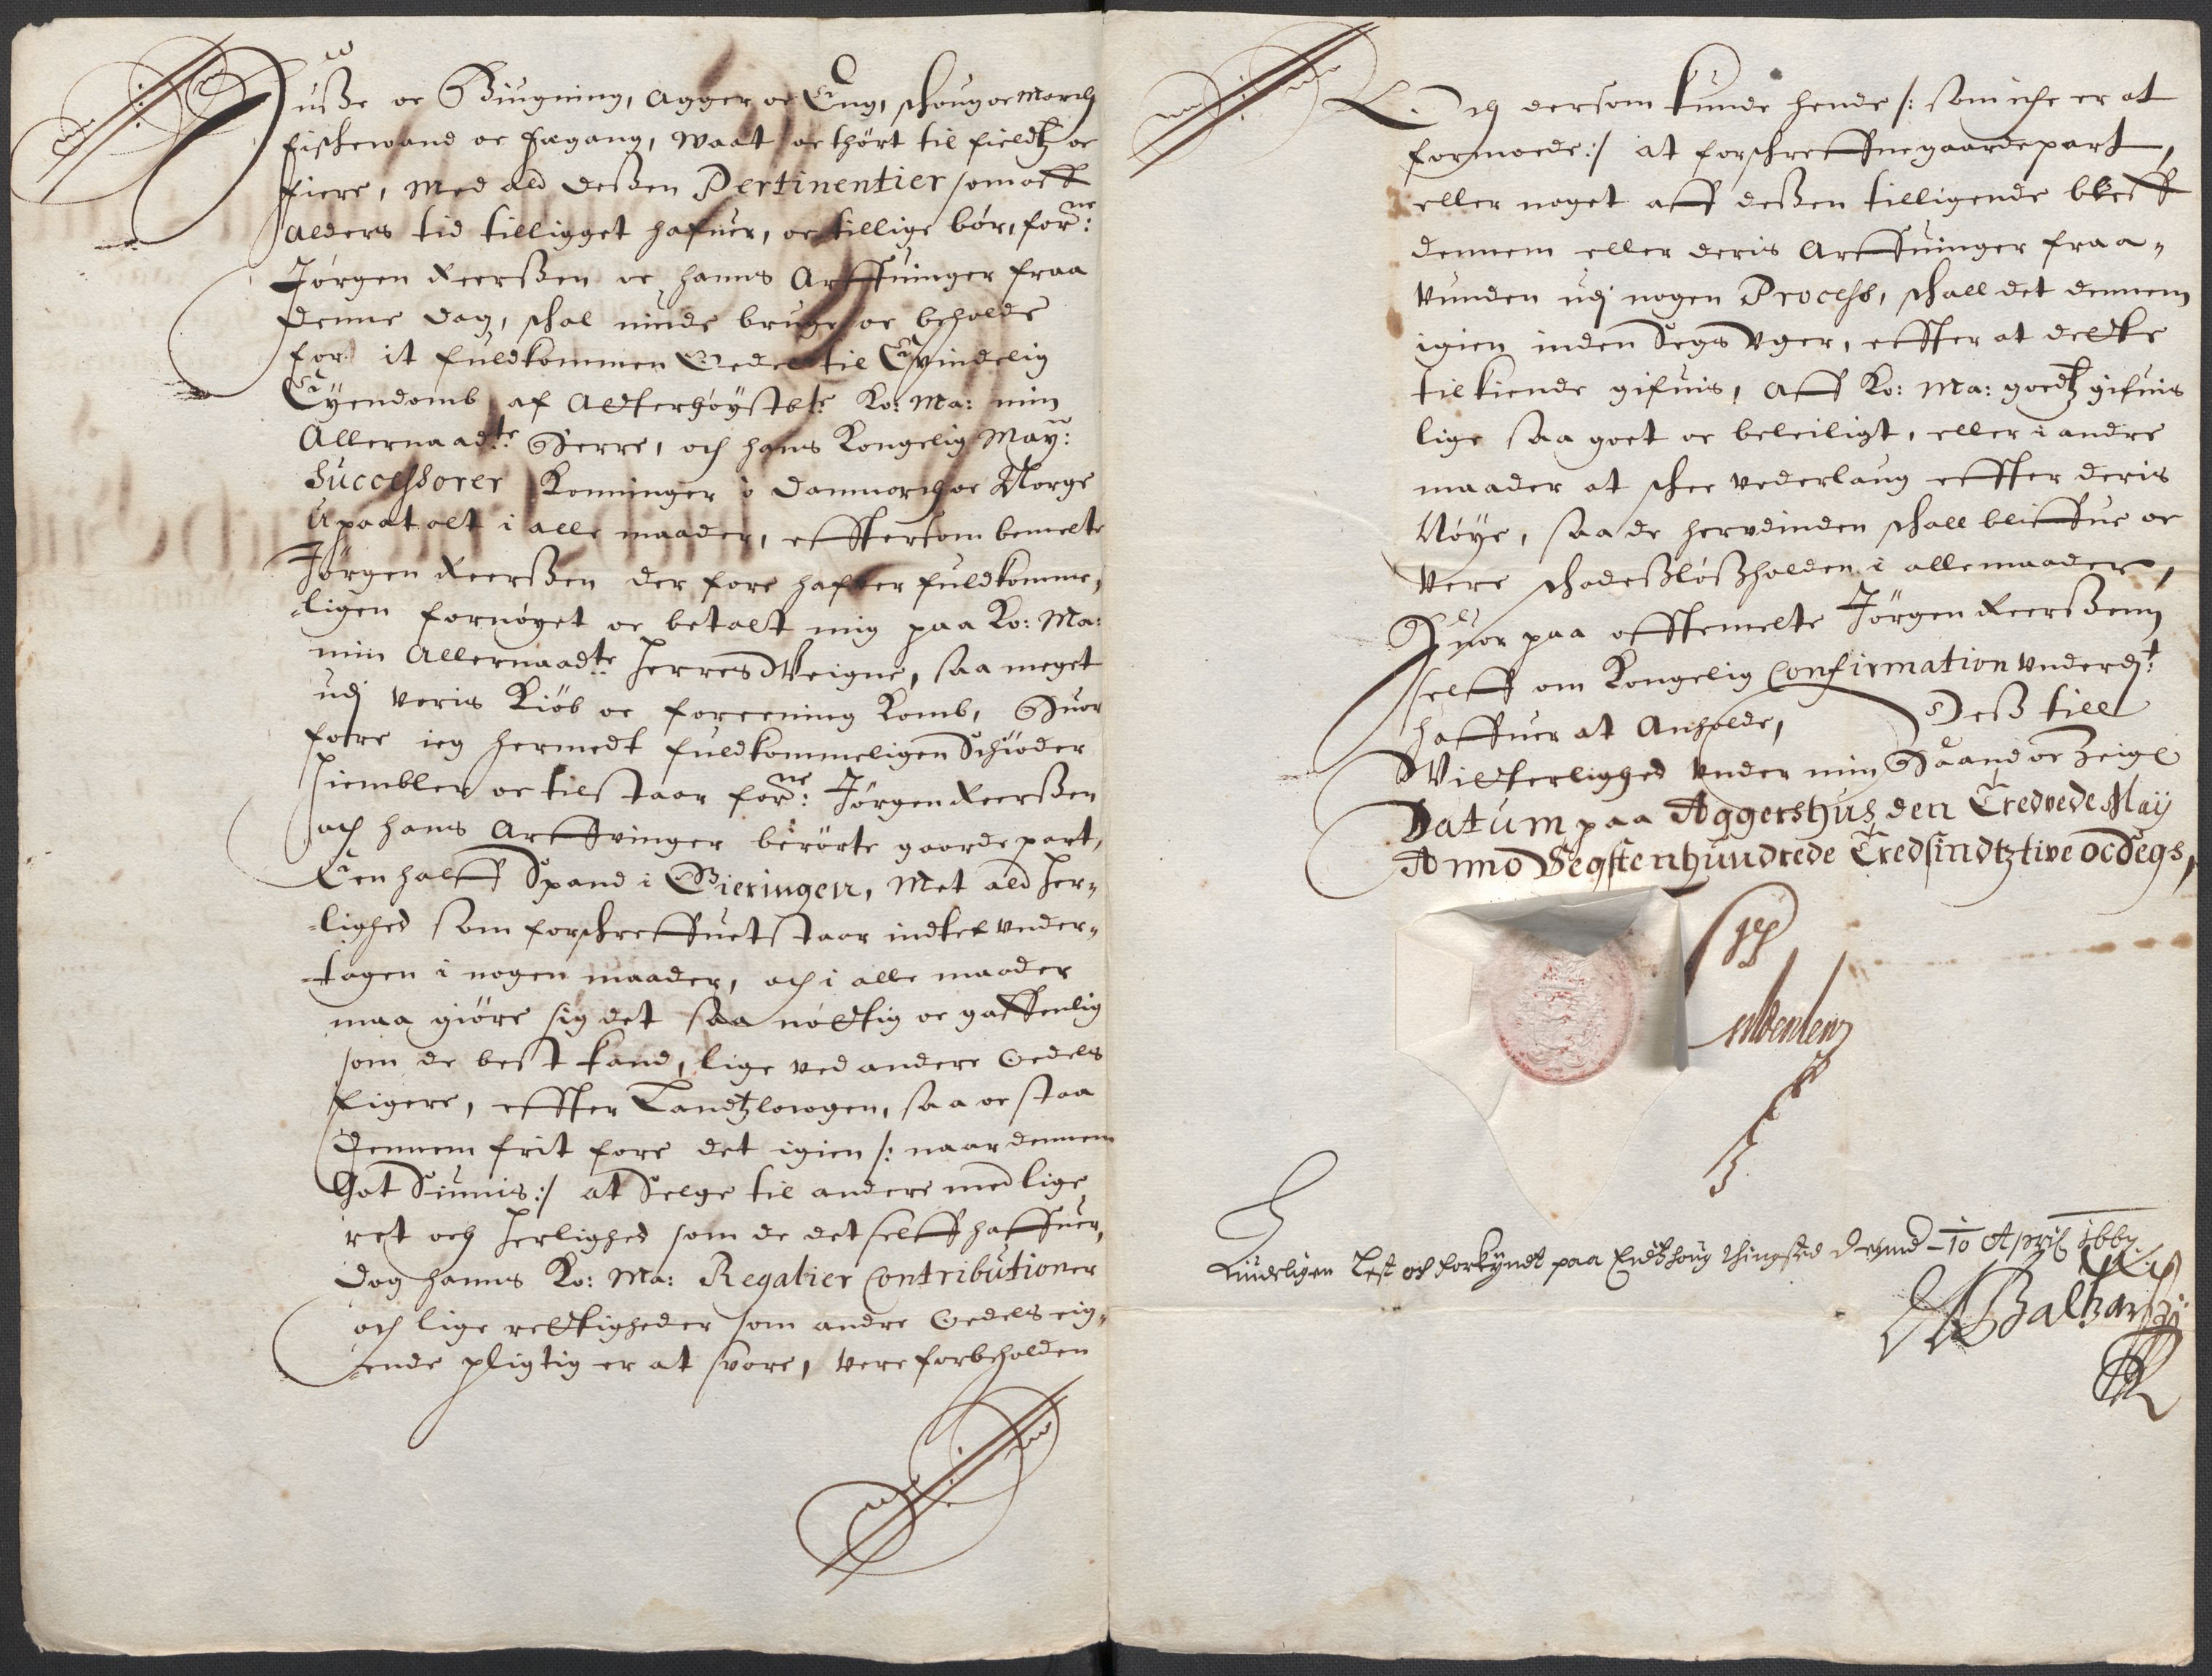 Huße oc Biugning, Agger oc Eng, schoug oc march
fischewand oc fægang, waat oc thört til fieldtz oc
fiere, med ald deßen Pertinentier som aff
Alders tid tilligget hafuer, oc tillige bör, forne:
Jörgen Reerßen oc hanns Arffuinger fraa
denne dag, schal niude bruge oc beholde
for it fuldkommen Oedel til Evindelig
Eyendomb af Allerhöystbte: Ko: Ma: min
Allernaadte: Herre, och hans Kongelig May:
Successorer Konninger i Danmarch oc Norge
Upaatalt i alle maader, effter som bemelte
Jörgen Reerßen der fore hafuer fuldkomme,
ligen fornöyet oc betalt mig paa Ko: Ma:
min Allernaadte Herres Weigne, saa meget
udj voris Kiöb oc foreening Komb, Huor
fore ieg hermedt fuldkommeligen Schiöder
hiembler oc tilstaar forne: Jörgen Reerßen
och hans Arffvinger berörte gaardepart,
Een halff Spand i Gieringen, Met ald Her-
lighed som forschreffuet staar indtet under-
tagen i nogen maader, och i alle maader
maa giöre sig det saa nöttig oc gaffenlig
som de best kand, lige ved andere Oedels
Eigere, effter Landtzlowgen, saa oc staa
dennem frit fore det igien /: naar dennem
Got Siunis :/ at Selge til andere med lige
ret och Herlighed som de det selff haffuer,
Dog hanns Ko: Ma: Regalier Contributioner
och lige rettigheder som andre Oedels eig-
ende pligtig er at svare, vere forbeholden
Och dersom kunde hende /: som iche er at
formoede :/ at forschreffne gaardepart,
eller noget aff deßen tilligende bleff
dennem eller deris Arffuinger fraa-
vunden udj nogen Process, schall det dennem
igien inden Segs Vger, effter at dette
tilkiende gifuis, Aff Ko: Ma: goedtz gifuis
lige saa goet oc beleiligt, eller i andre
maader at schee vederlaug effter deris
Nöye, saa de herudinden schall bliffue oc
vere schadeßlößholden i alle maader,
Huor paa offtemelte Jörgen Reerßenn
selff om Kongelig Confirmation underdt:
haffuer at Anholde, Deß till
Witterlighed under min Haand oc Zeigl
Datum paa Aggershus den Tredvede May
Anno Segstenhundrede Tredsindtztive oc Segs,
Liudeligen Lest och forkyndt paa thingsted 10 April 1667
Balthar